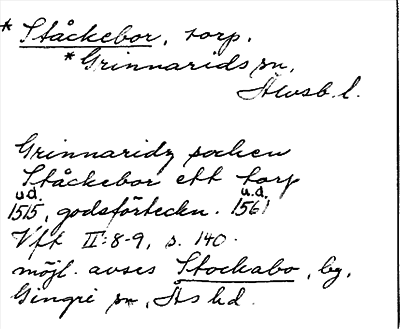 * Ståckebor, torp.
* Grinnarids sn,
Älvsb. l.
Grinnaridz sochen
Ståckebor ett torp
u.d. u.d.
1515, godsförteckn. 1561
Vft II:8-9, s. 140.
möjl. avses Stockabo, by,
Gingri sn, Ås hd.